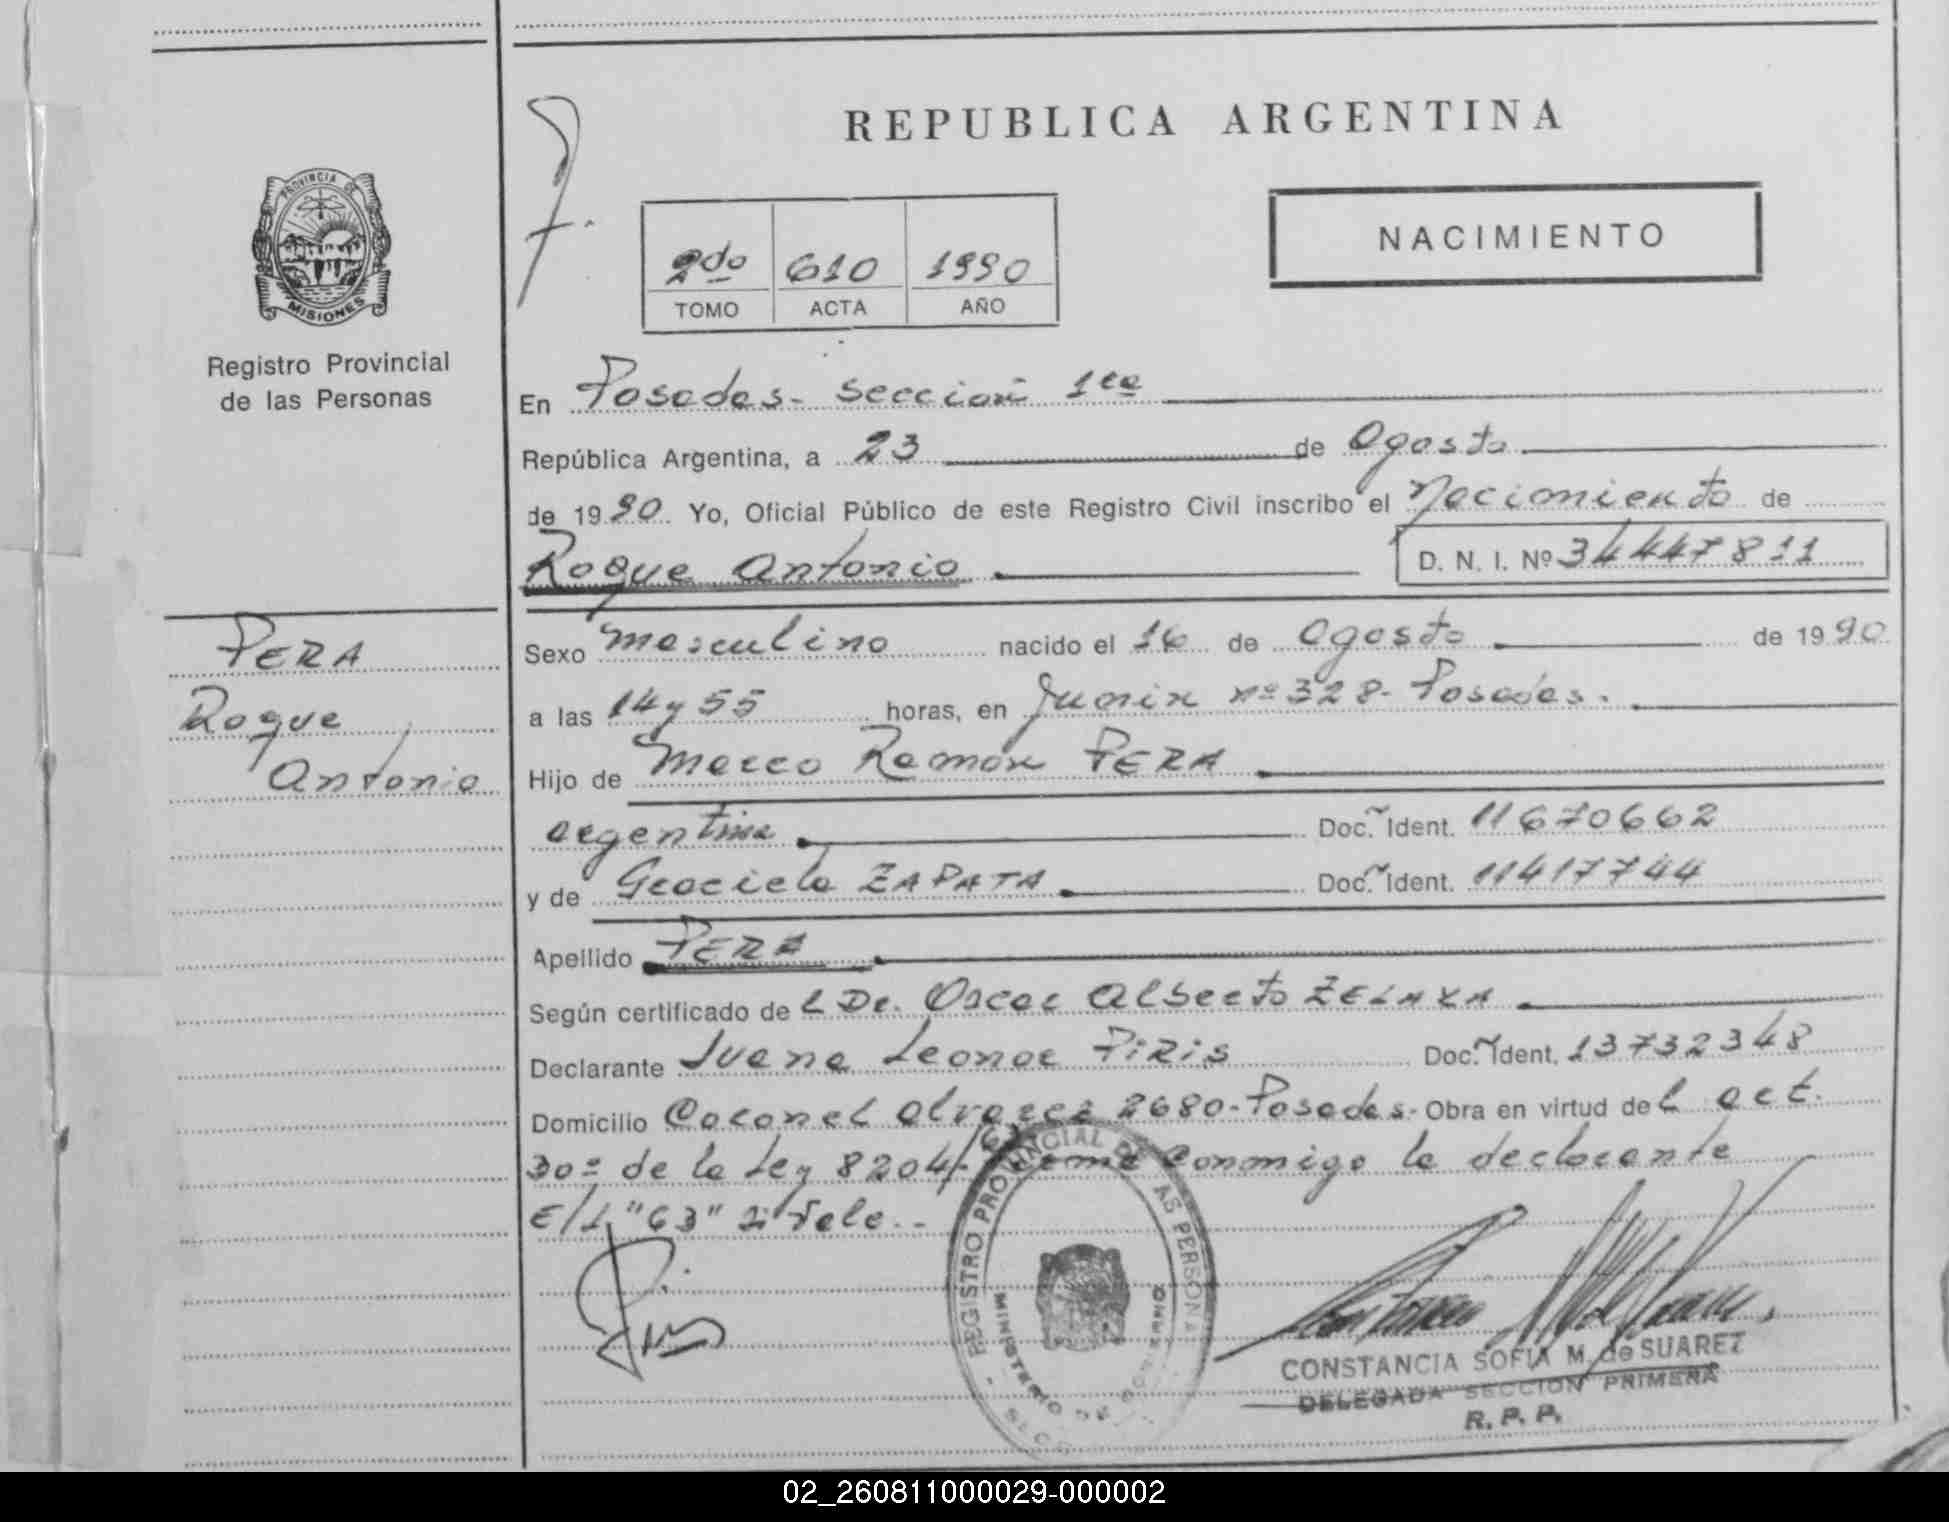 REPUBLICA ARGENTINA
NACIMIENTO
2do 610 1990
TOMO ACTA AÑO
PROVINCIA DE
MISIONES
Registro Provincial
de las Personas
En Posadas- sección 1ra
República Argentina, a 23 de Agosto
de 1990 Yo, Oficial Público de este Registro Civil inscribo el Nacimiento de
Roque Antonio D. N. I. Nº 34447811
PERA
Roque
Antonio
Sexo masculino nacido el 16 de Agosto de 1990
a las 14 y 55 horas, en Junin nº 328- Posadas.
Hijo de Marco Ramón PERA
argentina Doc. Ident. 11670662
y de Graciela ZAPATA Doc. Ident. 11417744
Apellido PERA
Según certificado del Dr. Oscar Alberto ZELAYA
Declarante Juana Leonor PIRIS Doc. Ident. 13732348
Domicilio Coronel Alvarez 2680-Posadas- Obra en virtud del art.
30º de la Ley 8204/63. Firma conmigo la declarante
E/L "63" Vale.-
REGISTRO PROVINCIAL DE LAS PERSONAS
MINISTERIO DE GOBIERNO
CONSTANCIA SOFIA M. de SUAREZ
DELEGADA SECCION PRIMERA
R. P. P.
02_260811000029-000002